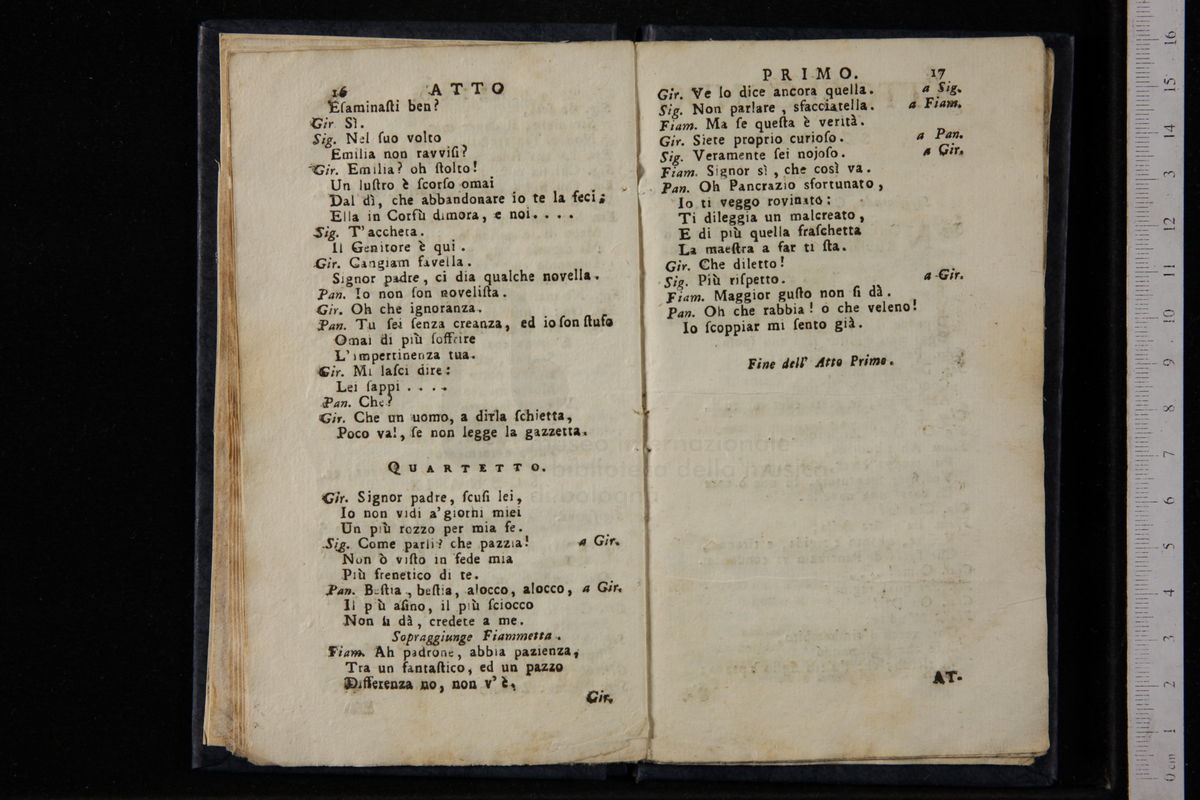 16 ATTO
Eſaminaſti ben?
Gir Sì.
Sig. Nel ſuo volto
Emilia non ravviſi?
Gir. Emilia? oh ſtolto!
Un luſtro è ſcorſo omai
Dal dì, che abbandonare io te la feci;
Ella in Corfù dimora, e noi....
Sig. T'accheta.
Il Genitore è qui.
Gir. Cangiam favella.
Signor padre, ci dia qualche novella.
Pan. Io non ſon noveliſta.
Gir. Oh che ignoranza.
Pan. Tu ſei ſenza creanza, ed io ſon ſtufo
Omai di più ſoffrire
L'impertinenza tua.
Gir. Mi laſci dire:
Lei ſappi ....
Pan. Che?
Gir. Che un uomo, a dirla ſchietta,
Poco val, ſe non legge la gazzetta.
QUARTETTO.
Gir. Signor padre, ſcuſi lei,
Io non vidi a'giorni miei
Un più rozzo per mia fe.
Sig. Come parli? che pazzia! a Gir.
Non ò viſto in fede mia
Più frenetico di te.
Pan. Beſtia, beſtia, alocco, alocco, a Gir.
Il più aſino, il più ſciocco
Non ſi dà, credete a me.
Sopraggiunge Fiammetta.
Fiam. Ah padrone, abbia pazienza,
Tra un fantaſtico, ed un pazzo
Differenza no, non v'è.
Gir.
PRIMO. 17
Gir. Ve lo dice ancora quella. a Sig.
Sig. Non parlare, sfacciatella. a Fiam.
Fiam. Ma ſe queſta è verità.
Gir. Siete proprio curioſo. a Pan.
Sig. Veramente ſei nojoſo. a Gir.
Fiam. Signor sì, che così va.
Pan. Oh Pancrazio sfortunato,
Io ti veggo rovinato:
Ti dileggia un malcreato,
E di più quella fraſchetta
La maeſtra a far ti ſta.
Gir. Che diletto!
Sig. Più riſpetto. a Gir.
Fiam. Maggior guſto non ſi dà.
Pan. Oh che rabbia! o che veleno!
Io ſcoppiar mi ſento già.
Fine dell' Atto Primo.
AT-
museo internazionale
biblioteca della musica
di bologna
0 cm 1 2 3 4 5 6 7 8 9 10 11 12 3 14 15 16